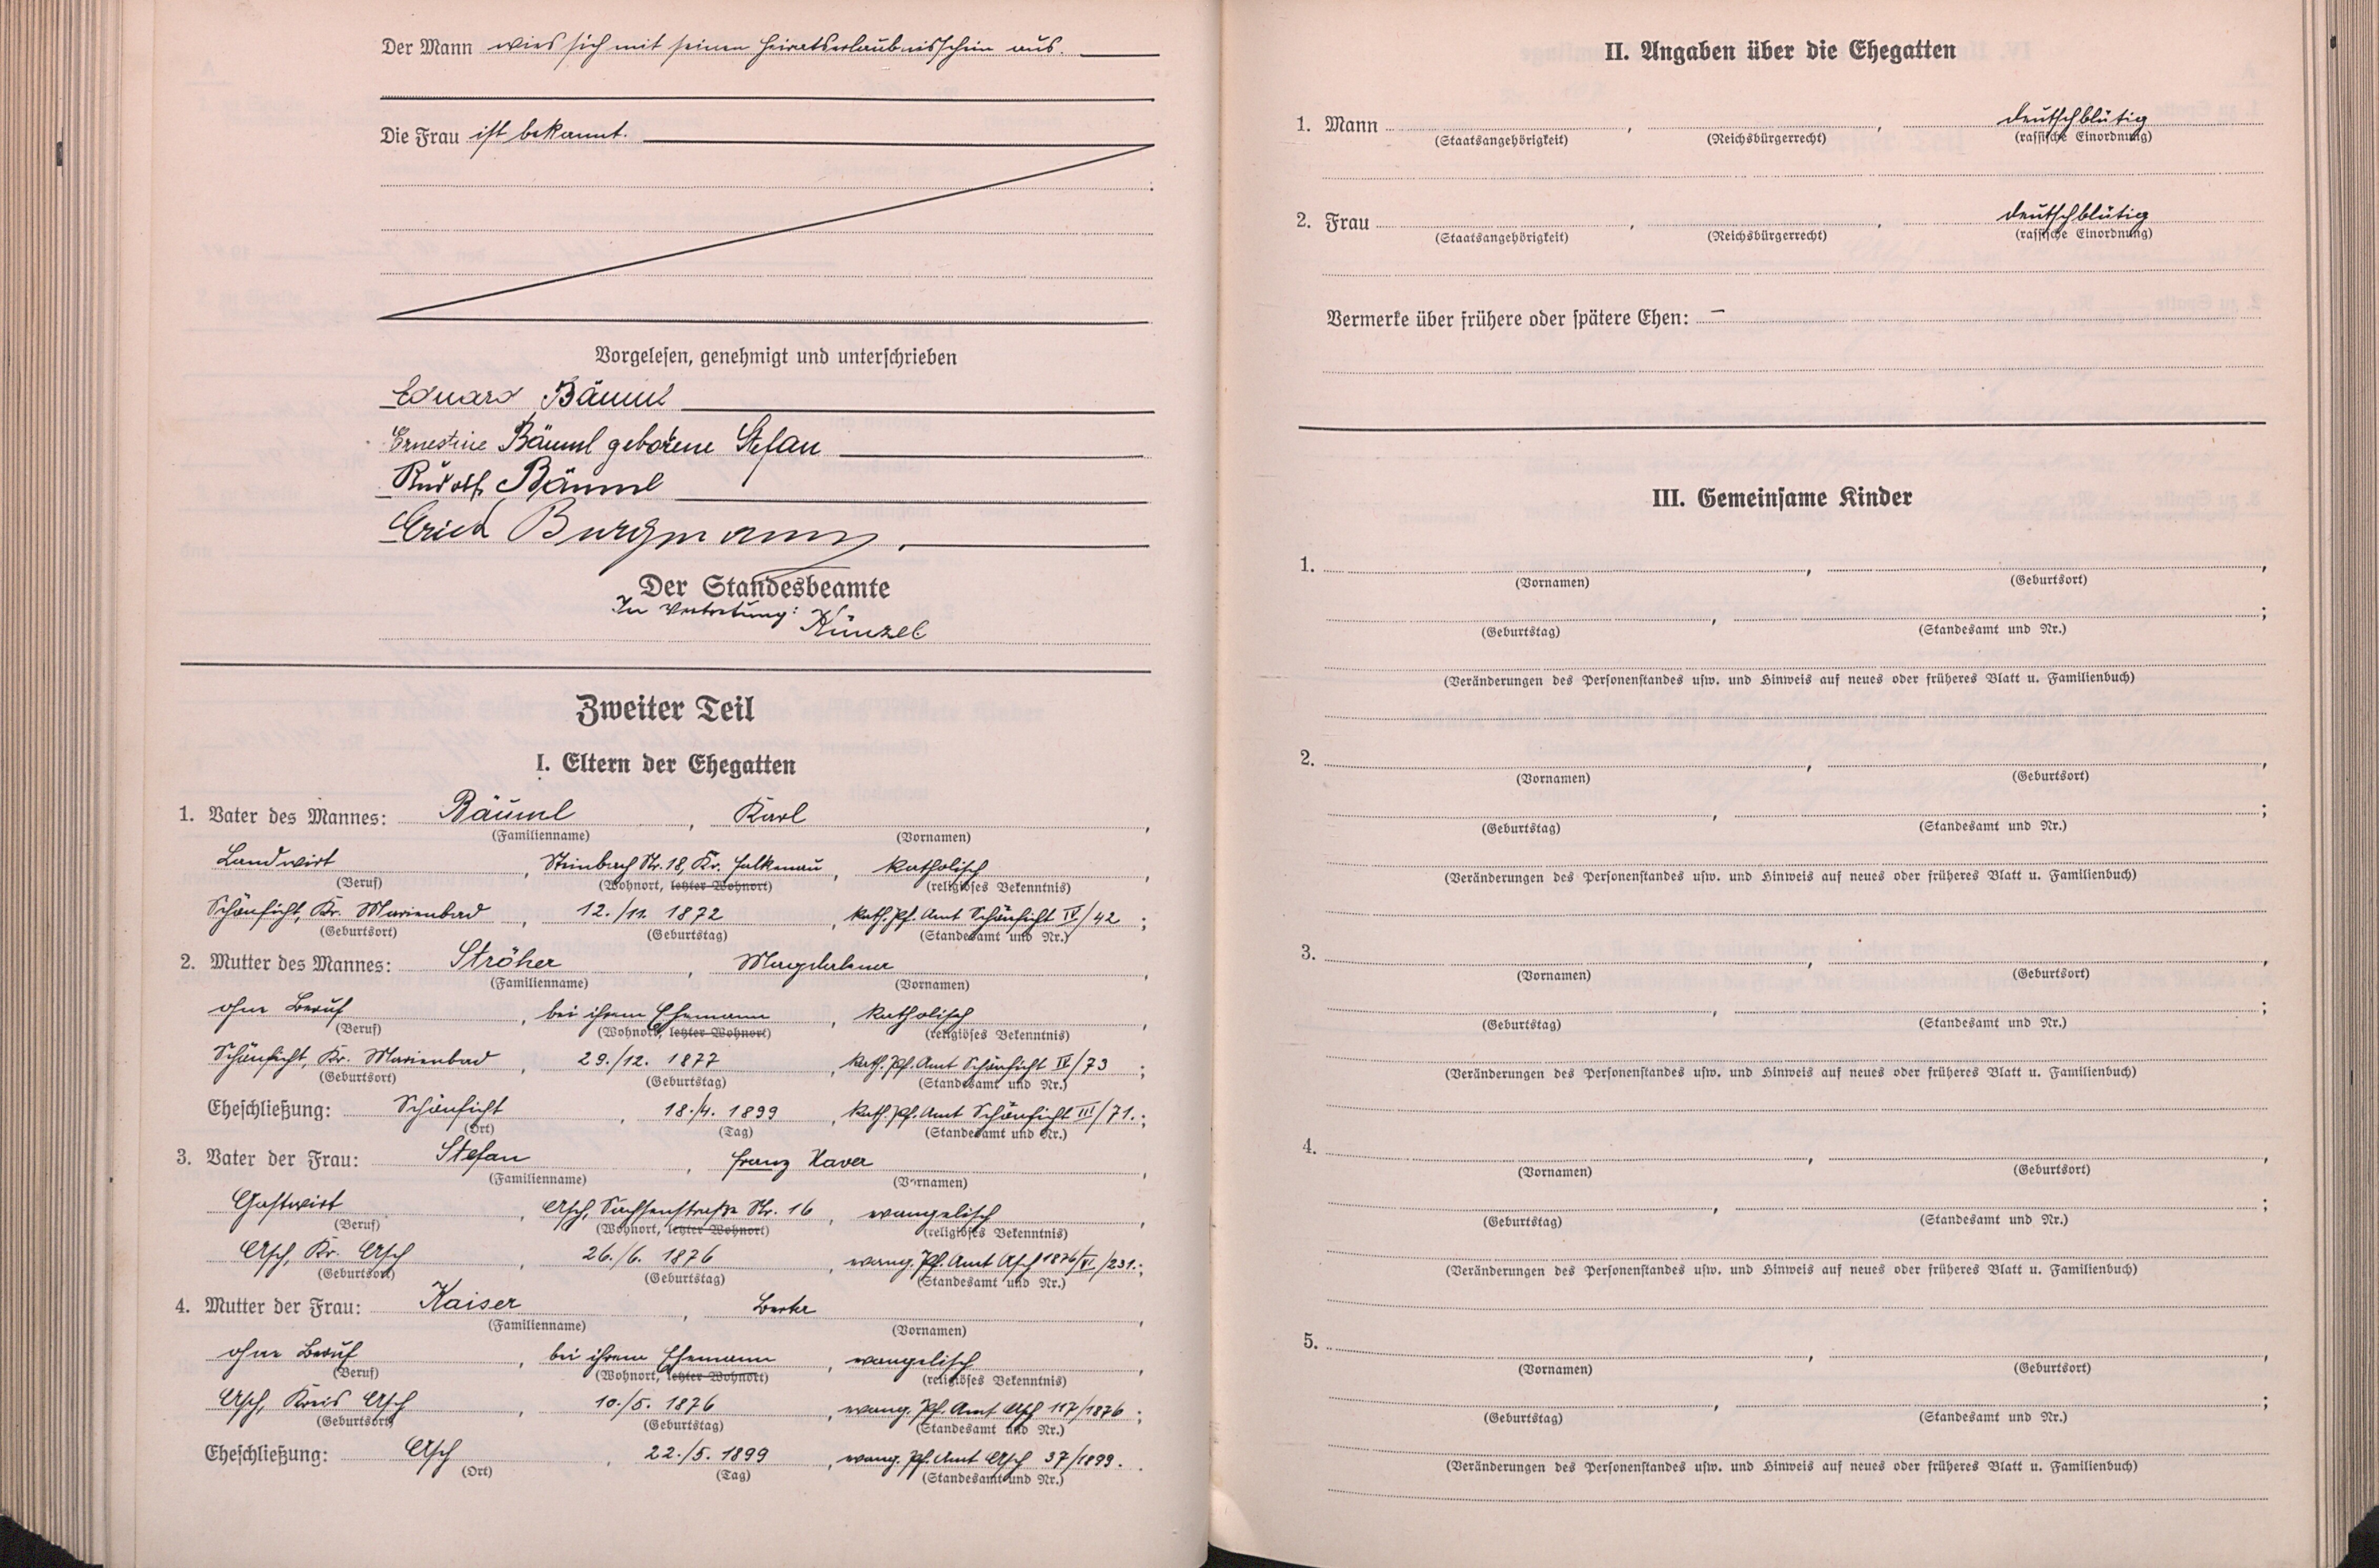 Der Mann wies sich mit seinem Heiratserlaubnisschein aus.
Die Frau ist bekannt.
Vorgelesen, genehmigt und unterschrieben
Eduard Bäuml
Ernestine Bäuml geborene Stefan
Rudolf Bäuml
Erich Burgmann
Der Standesbeamte
In Vertretung: Künzel
Zweiter Teil
I. Eltern der Ehegatten
1. Vater des Mannes: Bäuml, Karl,
(Familienname) (Vornamen)
Landwirt, Steinbach Nr. 18, Kr. Falkenau, katholisch,
(Beruf) (Wohnort, letzter Wohnort) (religiöses Bekenntnis)
Schönficht, Kr. Marienbad, 12./11. 1872, kath. Pf. Amt Schönficht IV/42;
(Geburtsort) (Geburtstag) (Standesamt und Nr.)
2. Mutter des Mannes: Ströher, Magdalena,
(Familienname) (Vornamen)
ohne Beruf, bei ihrem Ehemann, katholisch,
(Beruf) (Wohnort, letzter Wohnort) (religiöses Bekenntnis)
Schönficht, Kr. Marienbad, 29./12. 1877, kath. Pf. Amt Schönficht IV/73;
(Geburtsort) (Geburtstag) (Standesamt und Nr.)
Eheschließung: Schönficht, 18./4. 1899, kath. Pf. Amt Schönficht III/71.;
(Ort) (Tag) (Standesamt und Nr.)
3. Vater der Frau: Stefan, Franz Xaver,
(Familienname) (Vornamen)
Gastwirt, Asch, Sachsenstraße Nr. 16, evangelisch,
(Beruf) (Wohnort, letzter Wohnort) (religiöses Bekenntnis)
Asch, Kr. Asch, 26./6. 1876, evang. Pf. Amt Asch 1876/VI/231.;
(Geburtsort) (Geburtstag) (Standesamt und Nr.)
4. Mutter der Frau: Kaiser, Berta,
(Familienname) (Vornamen)
ohne Beruf, bei ihrem Ehemann, evangelisch,
(Beruf) (Wohnort, letzter Wohnort) (religiöses Bekenntnis)
Asch, Kreis Asch, 10./5. 1876, evang. Pf. Amt Asch 117/1876;
(Geburtsort) (Geburtstag) (Standesamt und Nr.)
Eheschließung: Asch, 22./5. 1899, evang. Pf. Amt Asch 37/1899.
(Ort) (Tag) (Standesamt und Nr.)
II. Angaben über die Ehegatten
1. Mann , , deutschblütig
(Staatsangehörigkeit) (Reichsbürgerrecht) (rassische Einordnung)
2. Frau , , deutschblütig
(Staatsangehörigkeit) (Reichsbürgerrecht) (rassische Einordnung)
Vermerke über frühere oder spätere Ehen: –
III. Gemeinsame Kinder
1. , ,
(Vornamen) (Geburtsort)
, ;
(Geburtstag) (Standesamt und Nr.)
(Veränderungen des Personenstandes usw. und Hinweis auf neues oder früheres Blatt u. Familienbuch)
2. , ,
(Vornamen) (Geburtsort)
, ;
(Geburtstag) (Standesamt und Nr.)
(Veränderungen des Personenstandes usw. und Hinweis auf neues oder früheres Blatt u. Familienbuch)
3. , ,
(Vornamen) (Geburtsort)
, ;
(Geburtstag) (Standesamt und Nr.)
(Veränderungen des Personenstandes usw. und Hinweis auf neues oder früheres Blatt u. Familienbuch)
4. , ,
(Vornamen) (Geburtsort)
, ;
(Geburtstag) (Standesamt und Nr.)
(Veränderungen des Personenstandes usw. und Hinweis auf neues oder früheres Blatt u. Familienbuch)
5. , ,
(Vornamen) (Geburtsort)
, ;
(Geburtstag) (Standesamt und Nr.)
(Veränderungen des Personenstandes usw. und Hinweis auf neues oder früheres Blatt u. Familienbuch)